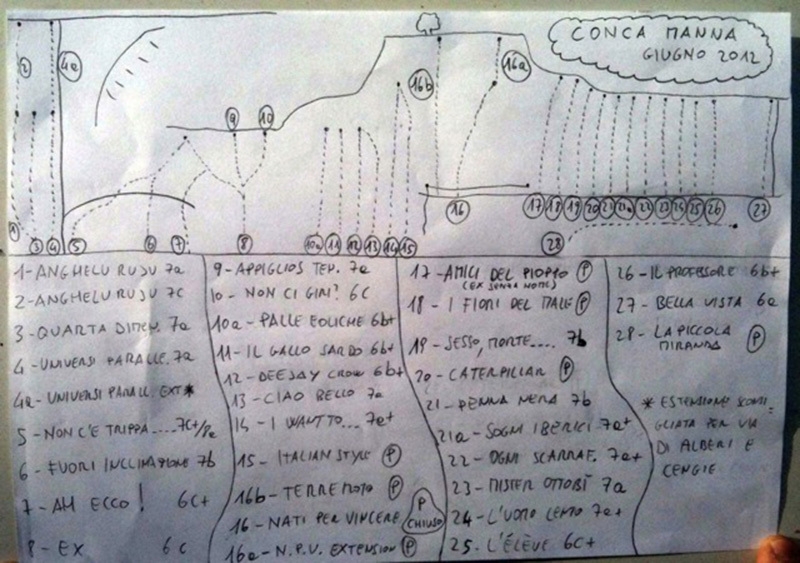 CONCA MANNA
GIUGNO 2012
2
4a
9
10
16b
16a
1
3
4
5
6
7
8
10a
11
12
13
14
15
16
17
18
19
20
21
21a
22
23
24
25
26
27
28
1-ANGHELU RUJU 7a
2-ANGHELU RUJU 7c
3-QUARTA DIMEN. 7a
4-UNIVERSI PARALLE. 7a
4a-UNIVERSI PARALL. EXT*
5-NON C'E TRIPPA.....7c+/8a
6-FUORI INCLINAZIONE 7b
7-AH ECCO! 6c+
8-EX 6c
9-APPIGLIOS TEN. 7a
10-NON CI GIRI? 6c
10a-PALLE EOLICHE 6b+
11-IL GALLO SARDO 6b+
12-DEEJAY CROW 6b+
13-CIAO BELLO 7a
14-I WANT TO... 7a+
15-ITALIAN STYLE P
16b-TERREMOTO P
16-NATI PER VINCERE P CHIUSO
16a-N.P.V. EXTENSION P
17-AMICI DEL PIOPPO P
(EX SENZA NOME)
18-I FIORI DEL MALE P
19-SESSO, MORTE.... 7b
20-CATERPILLAR P
21-PENNA NERA 7b
21a-SOGNI IBERICI 7a+
22-OGNI SCARRAF. 7a+
23-MISTER OTTOBI 7a
24-L'UOMO LENTO 7a+
25-L'ÉLÈVE 6c+
26-IL PROFESSORE 6b+
27-BELLA VISTA 6a
28-LA PICCOLA
MIRANDA P
* ESTENSIONE SCONSI-
GLIATA PER VIA
DI ALBERI E
CENGIE